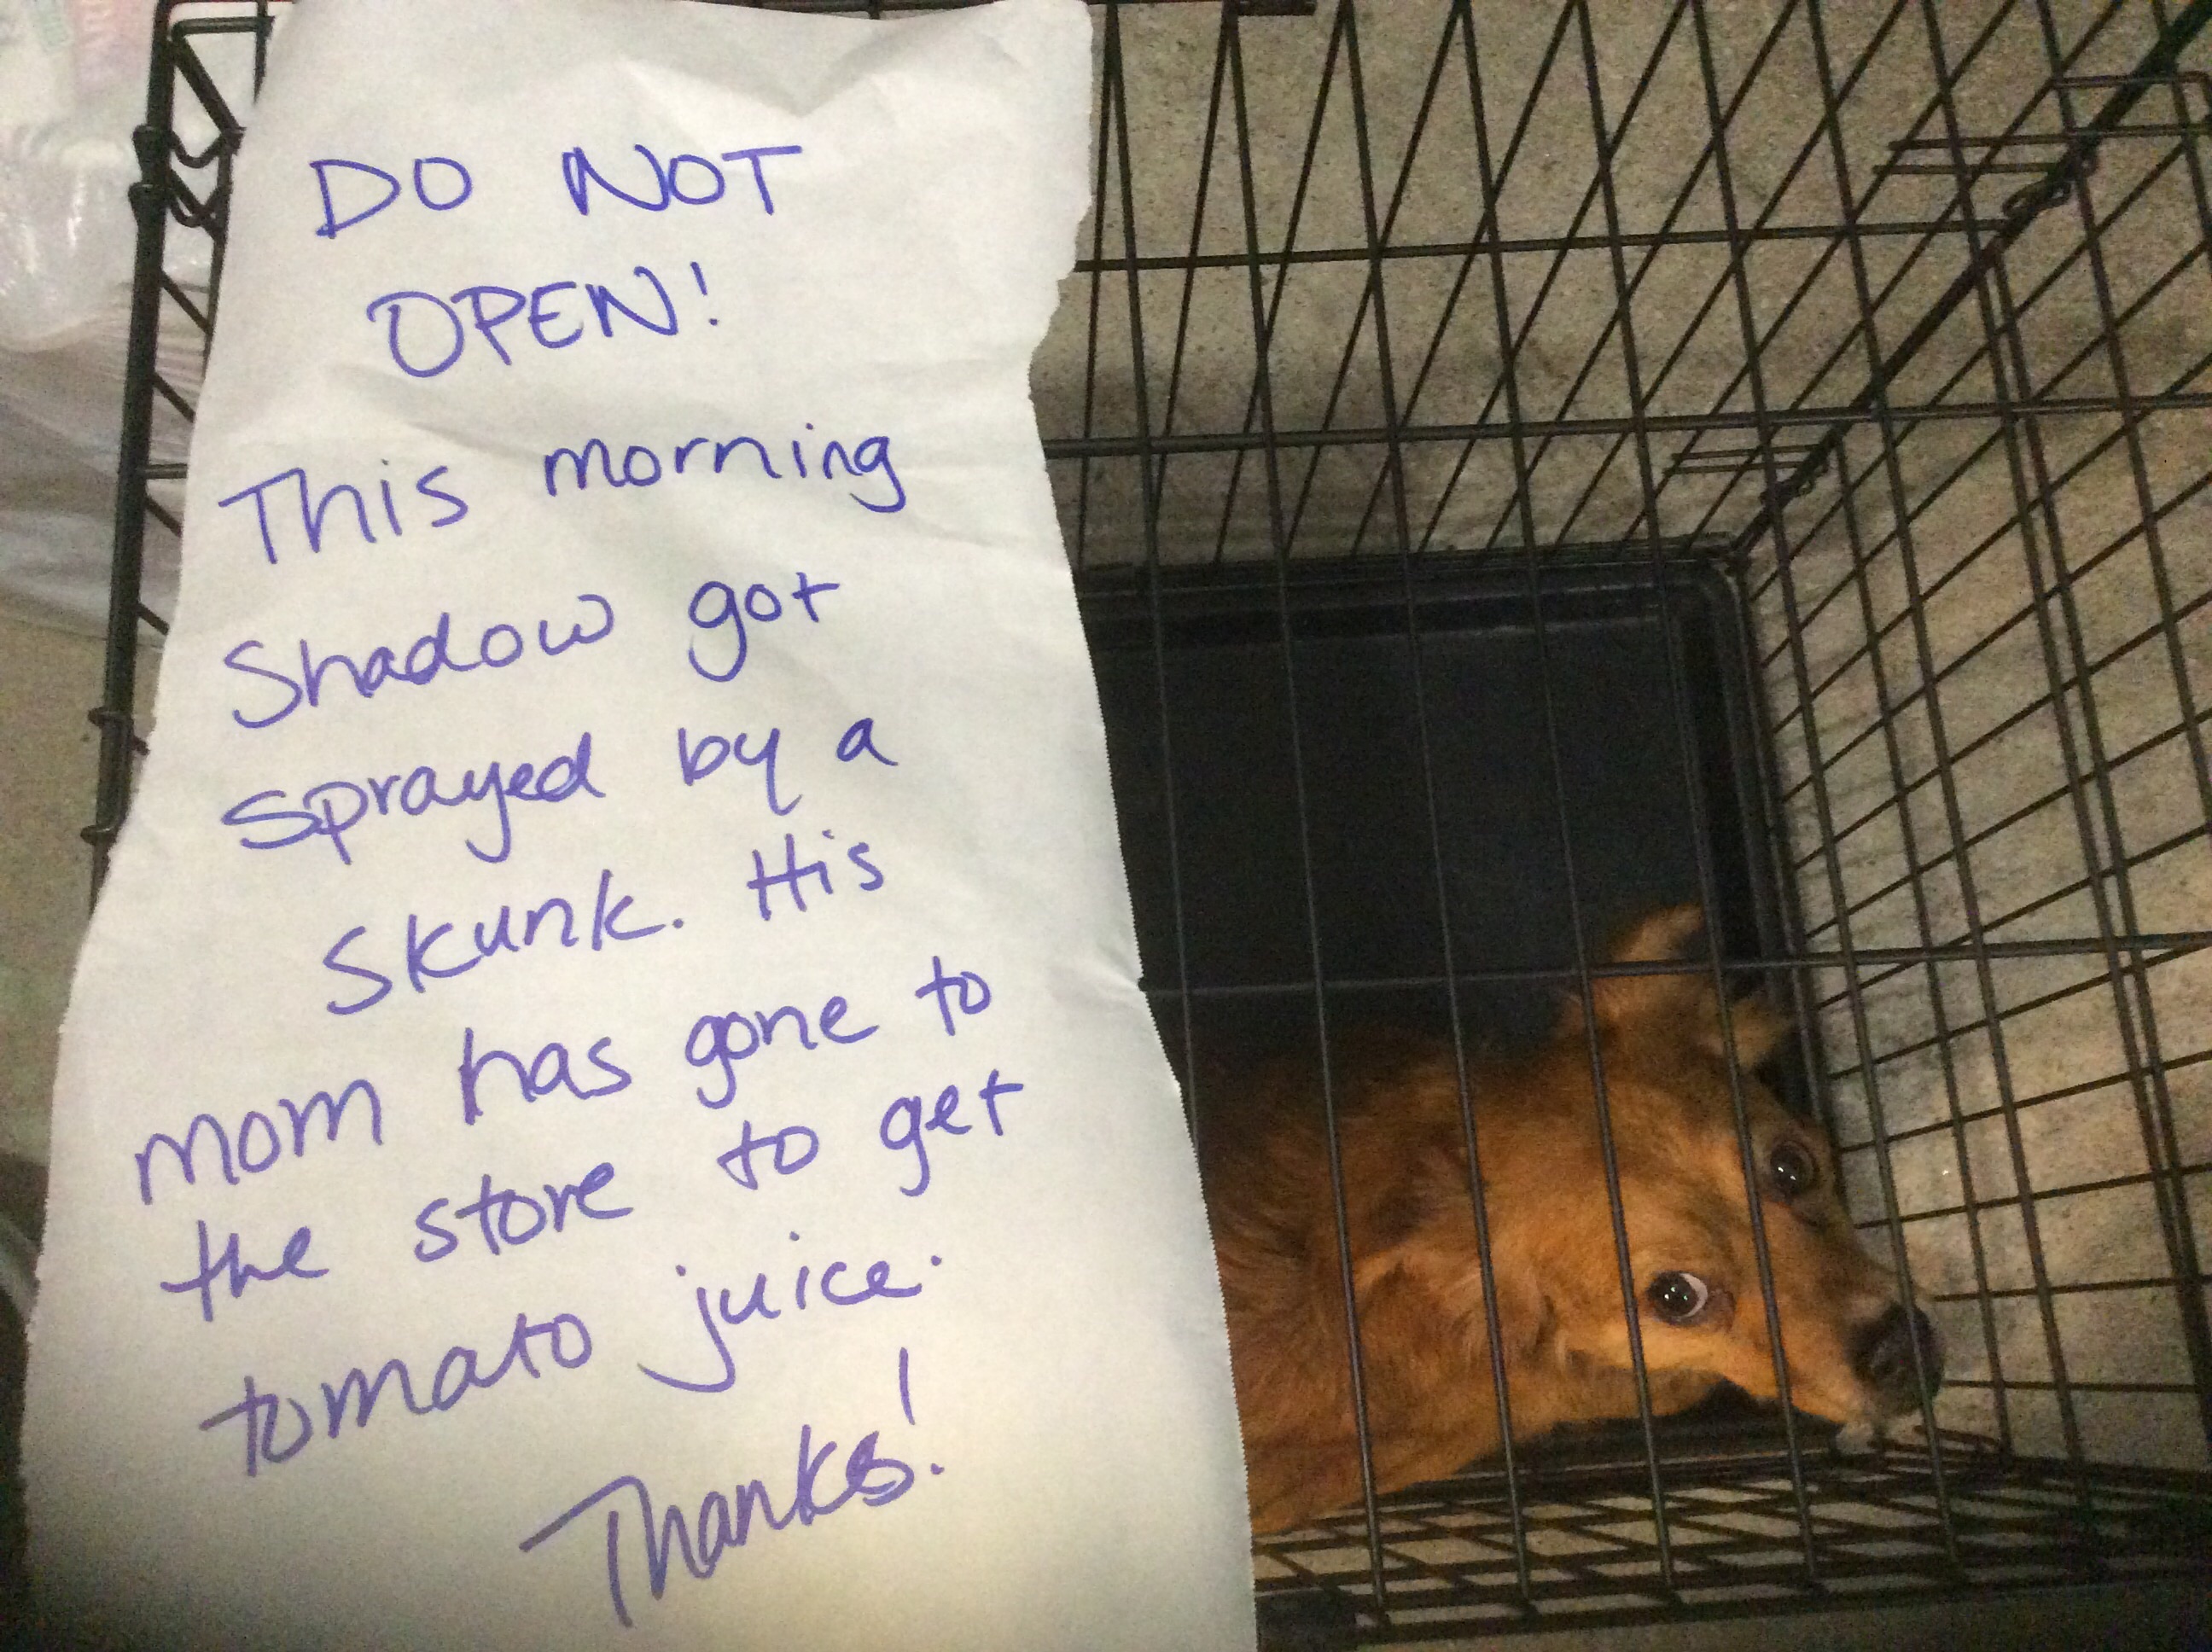 DO NOT
OPEN!
This morning
Shadow got
sprayed by a
skunk. His
mom has gone to
the store to get
tomato juice.
Thanks!